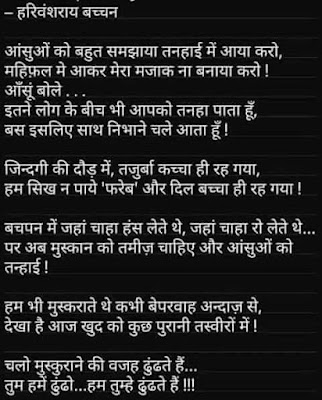 – हरिवंशराय बच्चन
आंसुओं को बहुत समझाया तनहाई में आया करो,
महिफ़ल मे आकर मेरा मजाक ना बनाया करो !
आँसूं बोले . . .
इतने लोग के बीच भी आपको तनहा पाता हूँ,
बस इसलिए साथ निभाने चले आता हूँ !
जिन्दगी की दौड़ में, तजुर्बा कच्चा ही रह गया,
हम सिख न पाये 'फरेब' और दिल बच्चा ही रह गया !
बचपन में जहां चाहा हंस लेते थे, जहां चाहा रो लेते थे...
पर अब मुस्कान को तमीज़ चाहिए और आंसुओं को
तन्हाई !
हम भी मुस्कराते थे कभी बेपरवाह अन्दाज़ से,
देखा है आज खुद को कुछ पुरानी तस्वीरों में !
चलो मुस्कुराने की वजह ढुंढते हैं...
तुम हमें ढुंढो...हम तुम्हे ढुंढते हैं !!!